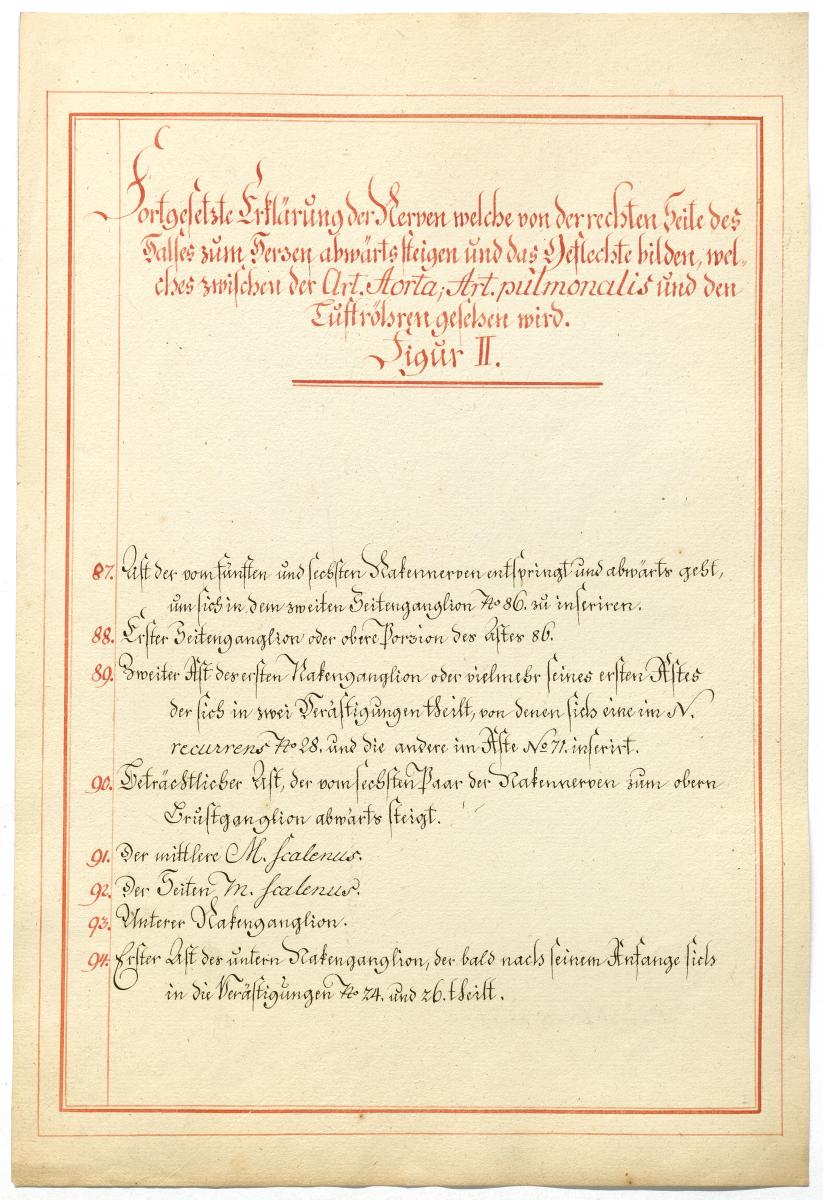 Fortgesetzte Erklärung der Nerven welche von der rechten Seite des
Halses zum Herzen abwärts steigen und das Geflechte bilden, wel-
ches zwischen der Art. Aorta, Art. pulmonalis und den
Luftröhren gesehen wird.
Figur II.
87. Ast der vom fünften und sechsten Nakennerven entspringt und abwärts geht,
um sich in dem zweiten Seitenganglion No 86. zu inseriren.
88. Erster Seitenganglion oder obere Porzion des Astes 86.
89. Zweiter Ast des ersten Nakenganglion oder vielmehr seines ersten Astes
der sich in zwei Verästigungen theilt, von denen sich eine im N.
recurrens No 28. und die andere im Aste No 71. inserirt.
90. Beträchtlicher Ast, der vom sechsten Paar der Nakennerven zum obern
Brustganglion abwärts steigt.
91. Der mittlere M. scalenus.
92. Der Seiten M. scalenus.
93. Unterer Nakenganglion.
94. Erster Ast des untern Nakenganglion, der bald nach seinem Anfange sich
in die Verästigungen No 24. und 26. theilt.